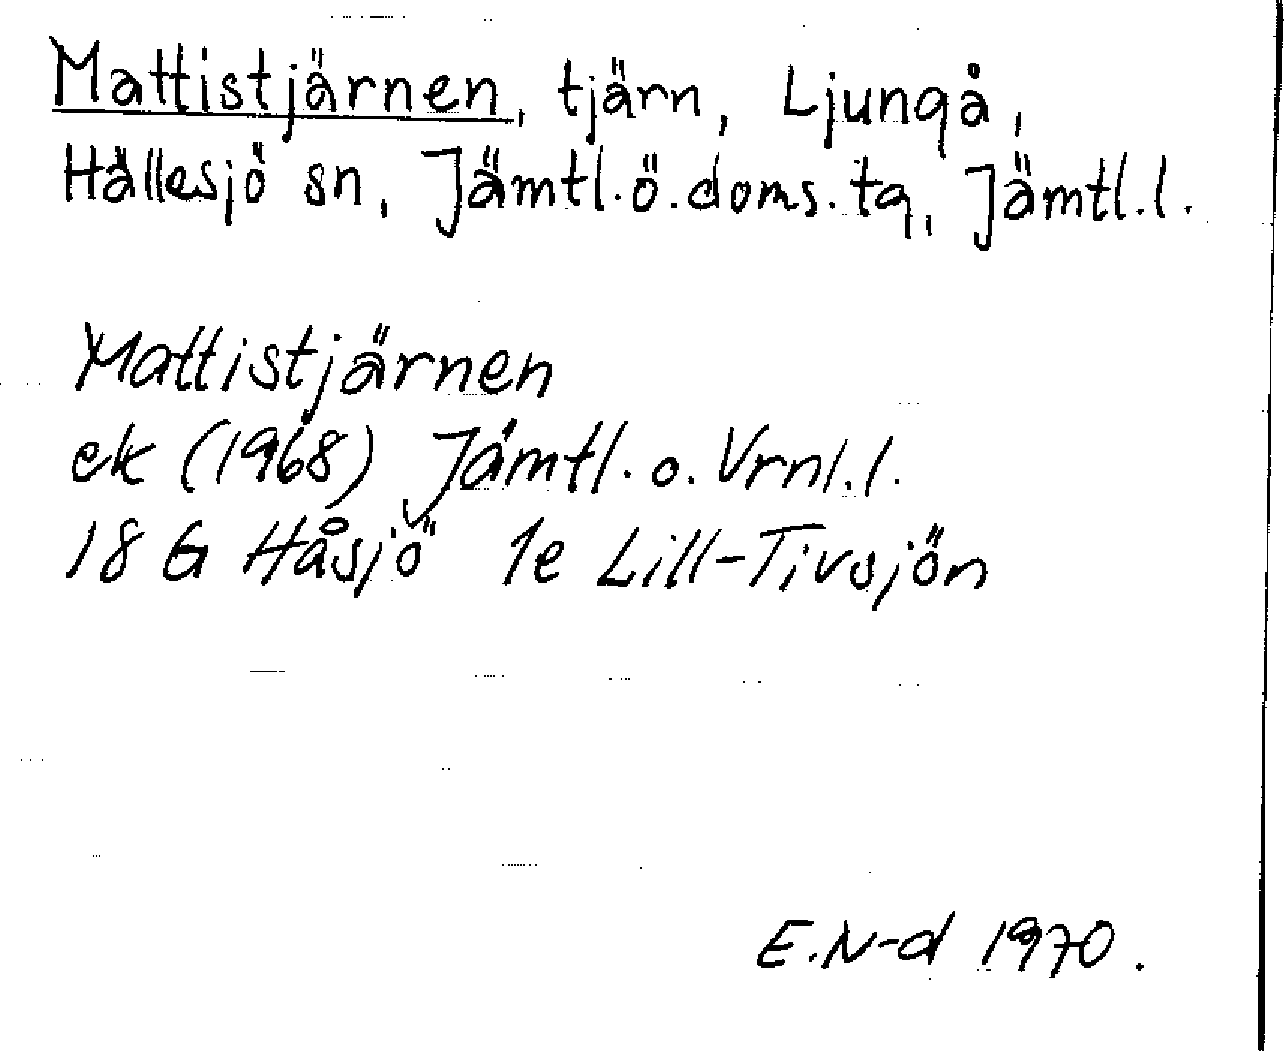 Mattistjärnen, tjärn, Ljungå,
Hällesjö sn, Jämtl.ö.doms.tg, Jämtl.l.
Mattistjärnen
ek (1968) Jämtl. o. Vrnl.l.
18 G Håsjö 1e Lill-Tivsjön
E.N-d 1970.